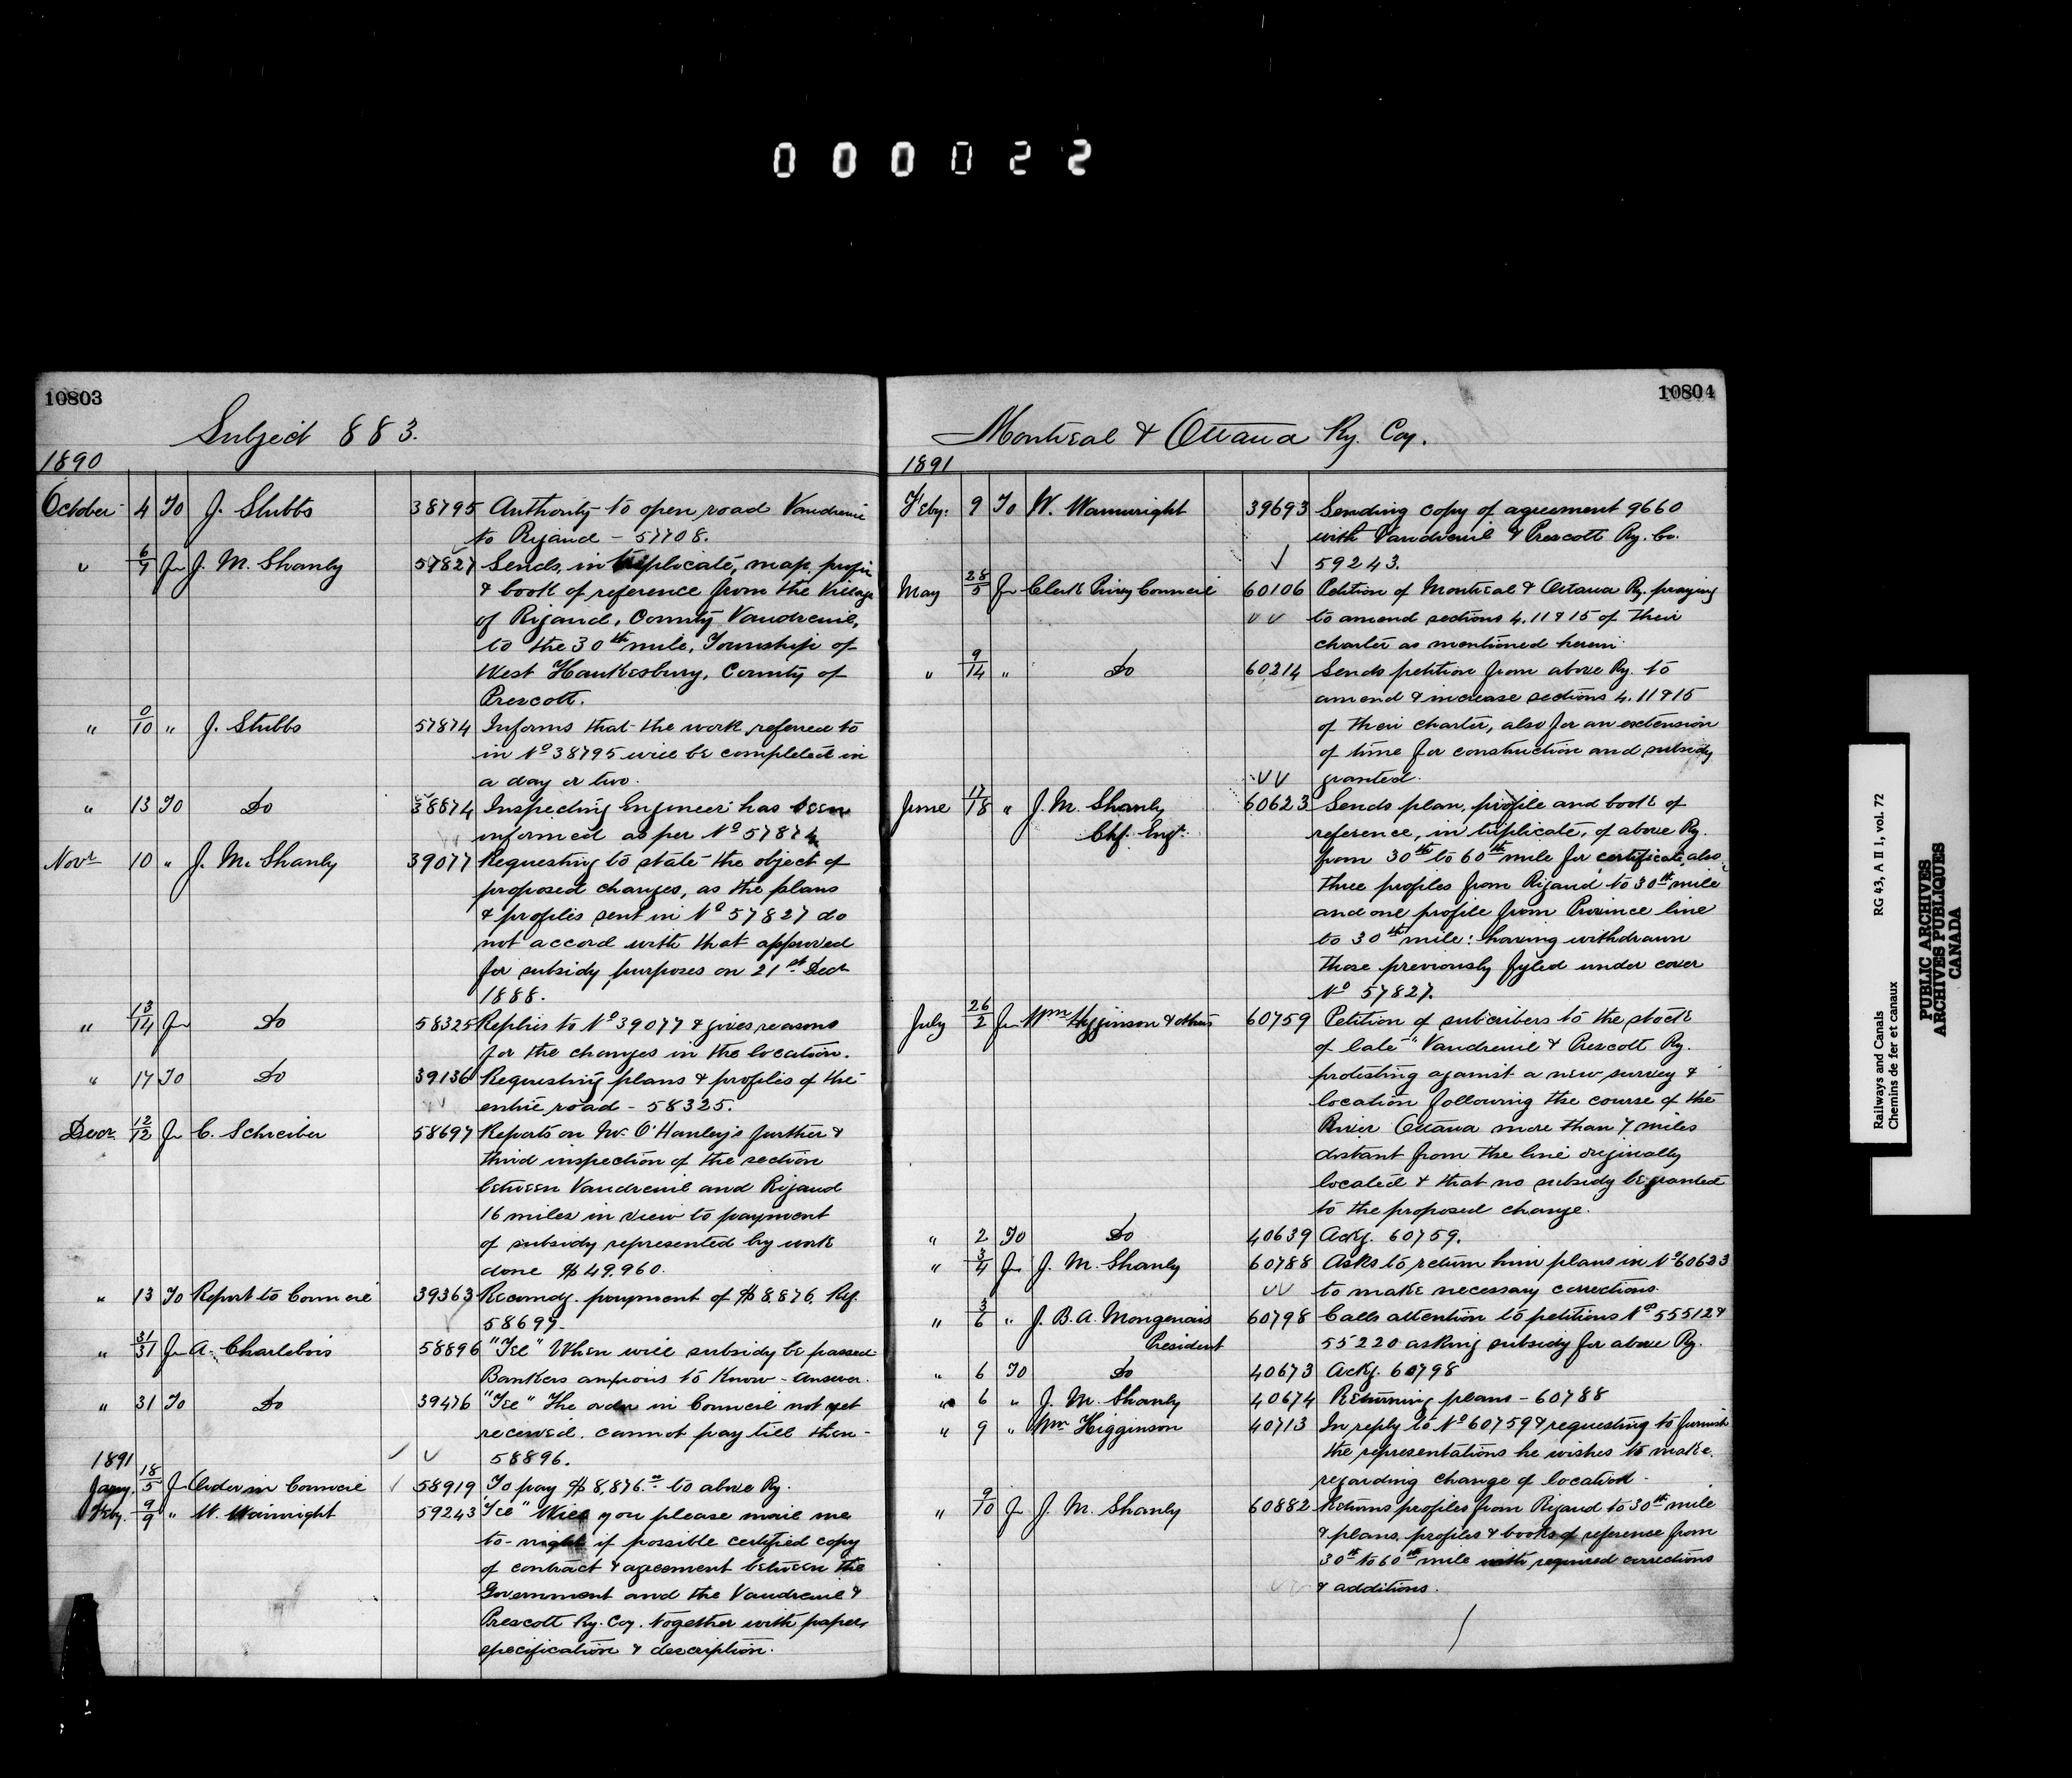 000022
10803
Subject 883.
1890
October 4 To J. Stubbs 38795 Authority to open road Vaudreuil
to Rigaud - 57708.
" 6/7 Fr J. M. Shanly 57827 Sends, in triplicate, map, profile
& book of reference from the Village
of Rigaud, County Vaudreuil,
to the 30th mile, Township of
West Hawkesbury, County of
Prescott.
" 9/10 " J. Stubbs 57874 Informs that the work referred to
in No 38795 will be completed in
a day or two.
" 13 To Do 38874 Inspecting Engineer has been
informed as per No 57874
Novr 10 " J. M. Shanly 39077 Requesting to state the object of
proposed changes, as the plans
& profiles sent in No 57827 do
not accord with that approved
for subsidy purposes on 21st Decr
1888.
" 13/14 Fr Do 58325 Replies to No 39077 & gives reasons
for the changes in the location.
" 17 To Do 39136 Requesting plans & profiles of the
entire road - 58325.
Decr 12/12 Fr C. Schreiber 58697 Reports on Mr. O'Hanley's further &
third inspection of the section
between Vaudreuil and Rigaud
16 miles in view to payment
of subsidy represented by work
done $49,960.
" 13 To Report to Council 39363 Recomdg. payment of $8,876. Ref.
58697-
" 31/31 Fr A. Charlebois 58896 "Tel" When will subsidy be passed
Bankers anxious to know - Answer.
" 31 To Do 39476 "Tel" The order in Council not yet
received. Cannot pay till then -
1891 58896.
Jany. 18/5 Fr Order in Council 58919 To pay $8,876.00 to above Ry.
Feby. 9/9 " W. Wainwright 59243 "Tel" Will you please mail me
to-night if possible certified copy
of contract & agreement between the
Government and the Vaudreuil &
Prescott Ry. Coy. together with papers
specification & description.
10804
Montreal & Ottawa Ry. Coy.
1891
Feby: 9 To W. Wainwright 39693 Sending copy of agreement 9660
with Vaudreuil & Prescott Ry. Co.
59243.
May 28/5 Fr Clerk Privy Council 60106 Petition of Montreal & Ottawa Ry. praying
to amend sections 4. 11 & 15 of their
charter as mentioned herein.
" 9/14 " Do 60214 Sends petition from above Ry. to
amend & increase sections 4. 11 & 15
of their charter, also for an extension
of time for construction and subsidy
granted.
June 17/18 " J. M. Shanly 60623 Sends plan, profile and book of
Chf. Engr. reference, in triplicate, of above Ry.
from 30th to 60th mile for certificate, also
three profiles from Rigaud to 30th mile
and one profile from Province line
to 30th mile: having withdrawn
those previously fyled under cover
No 57827.
July 26/2 Fr Wm Higginson & others 60759 Petition of subscribers to the stock
of late "Vaudreuil & Prescott Ry.
protesting against a new survey &
location following the course of the
River Ottawa more than 7 miles
distant from the line originally
located & that no subsidy be granted
to the proposed change.
" 2 To Do 40639 Ackg. 60759.
" 3/4 Fr J. M. Shanly 60788 Asks to return him plans in No 60623
to make necessary corrections.
" 3/6 " J. B. A. Mongenais 60798 Calls attention to petitions No 55512 &
President 55220 asking subsidy for above Ry.
" 6 To Do 40673 Ackg. 60798
" 6 " J. M. Shanly 40674 Returning plans - 60788
" 9 " Wm Higginson 40713 In reply to No 60759 & requesting to furnish
the representations he wishes to make
regarding change of location.
" 9/10 Fr J. M. Shanly 60882 Returns profiles from Rigaud to 30th mile
& plans, profiles & books of reference from
30th to 60th mile with required corrections
& additions.
Railways and Canals RG 43, A II 1, vol. 72
Chemins de fer et canaux
PUBLIC ARCHIVES
ARCHIVES PUBLIQUES
CANADA